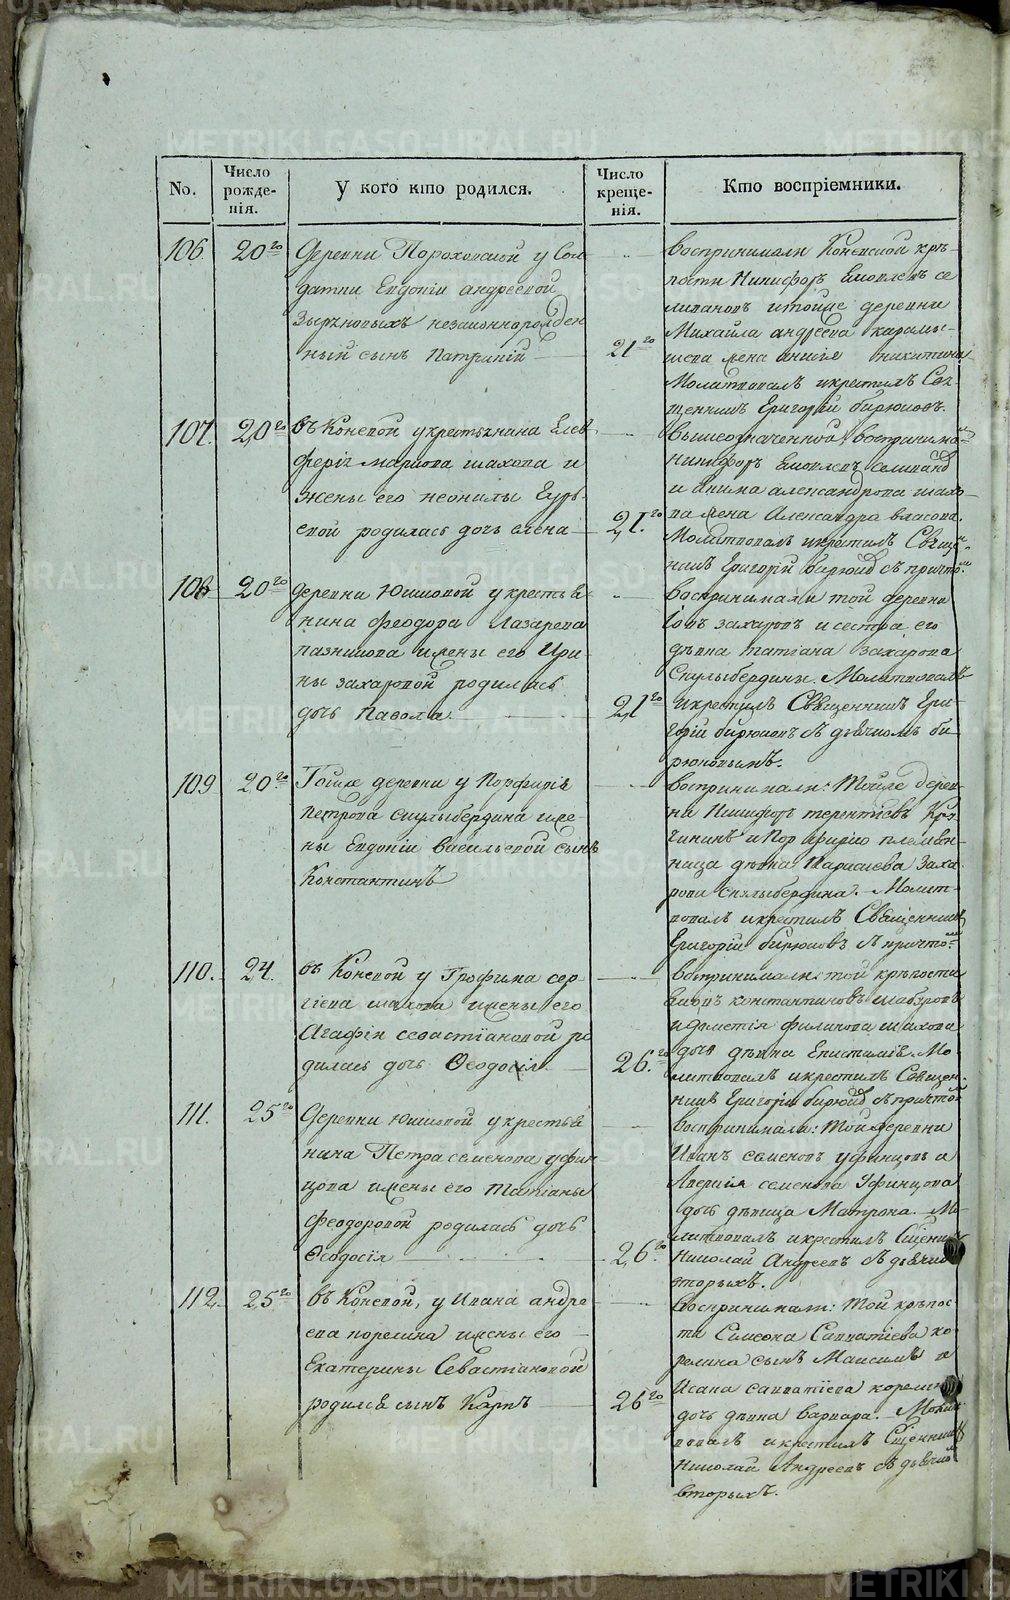 No.
Число рожде-
нія.
У кого кто родился.
Число креще-
нія.
Кто воспріемники.
106.
20го
Деревни Пороховской у Сол
датки Евдокіи андреевой
Зыряновыхъ незаконнорожден
ный сынъ Патрикій
21го
воспринимали Коневской крѣ-
пости Никифоръ Яковлевъ се
ливановъ итойже деревни
Михайла андреева карамы-
шева жена никитина
Молитвовалъ икрестилъ Свя-
щенникъ Григорій бирюковъ.
107.
20го
въ Коневой укрестьянина Елев
ферія маркова шахова и
жены его неонилы Гурь
евой родилась дочь елена
21го
вышеозначенной воспринимал
никифоръ Яковлевъ селиванов
и акима александрова шахо-
ва жена Александра власова.
Молитвовалъ икрестилъ Свяще
никъ Григорій бирюков съ причто
108
20го
деревни Юшковой укрестья
нина Феодора Лазарева
казникова ижены его Ири
ны захаровой родилась
дочь Павола
21го
воспринимали той деревни
Іовъ захаровъ и сестра его
дѣвка татіана захарова
Скулыбердины. Молитвовалъ
икрестилъ Священникъ Гри-
горій бирюковъ съ дьячкомъ би-
рюковымъ.
109
20го
Тойже деревни у Порфирія
петрова скулыбердина иже-
ны Евдокіи васильевой сынъ
Константинъ
воспринимали: Тойже дерев-
ни Никифоръ терентіевъ
и Порфирію племян-
ница дѣвка Параскева Заха
рова Скулыбердина. Молит-
вовалъ икрестилъ Священникъ
Григорій бирюковъ съ причто
110.
24.
въ Коневой у Трофима сер-
гіева шахова ижены его
Агафіи севастіановой ро
дилась дочь Ѳеодосія
26го
воспринимали: той крѣпости
Яковъ константиновъ
идементія филипова шахова
дочь дѣвка Епистимія. Мо-
литвовалъ икрестилъ Священ-
никъ Григорій бирюков съ причто
111.
25го
Деревни Юшковой укрестья
нина Петра семенова уфин
цова ижены его Татіаны
Феодоровой родилась дочь
Ѳеодосія
26го
воспринимали: Той деревни
Иванъ семеновъ уфинцовъ и
Аверкія семенова Уфинцова
дочь дѣвица Матрона. Мо-
литвовалъ икрестилъ Сщенник
Николай Андреевъ съ дьячко
вторыхъ.
112.
25го
въ Коневой, у Ивана андре
ева корелина ижены его
Екатерины Севастіановой
родился сынъ Карпъ
26го
воспринимали: Той крѣпос-
ти Симеона Савватіева ко-
релина сынъ Максимъ и
Исака савватіева корелина
дочь дѣвка варвара. Молит
вовалъ икрестилъ Сщенникъ
Николай Андреевъ съ дьячко
вторыхъ.
METRIKI.GASO-URAL.RU